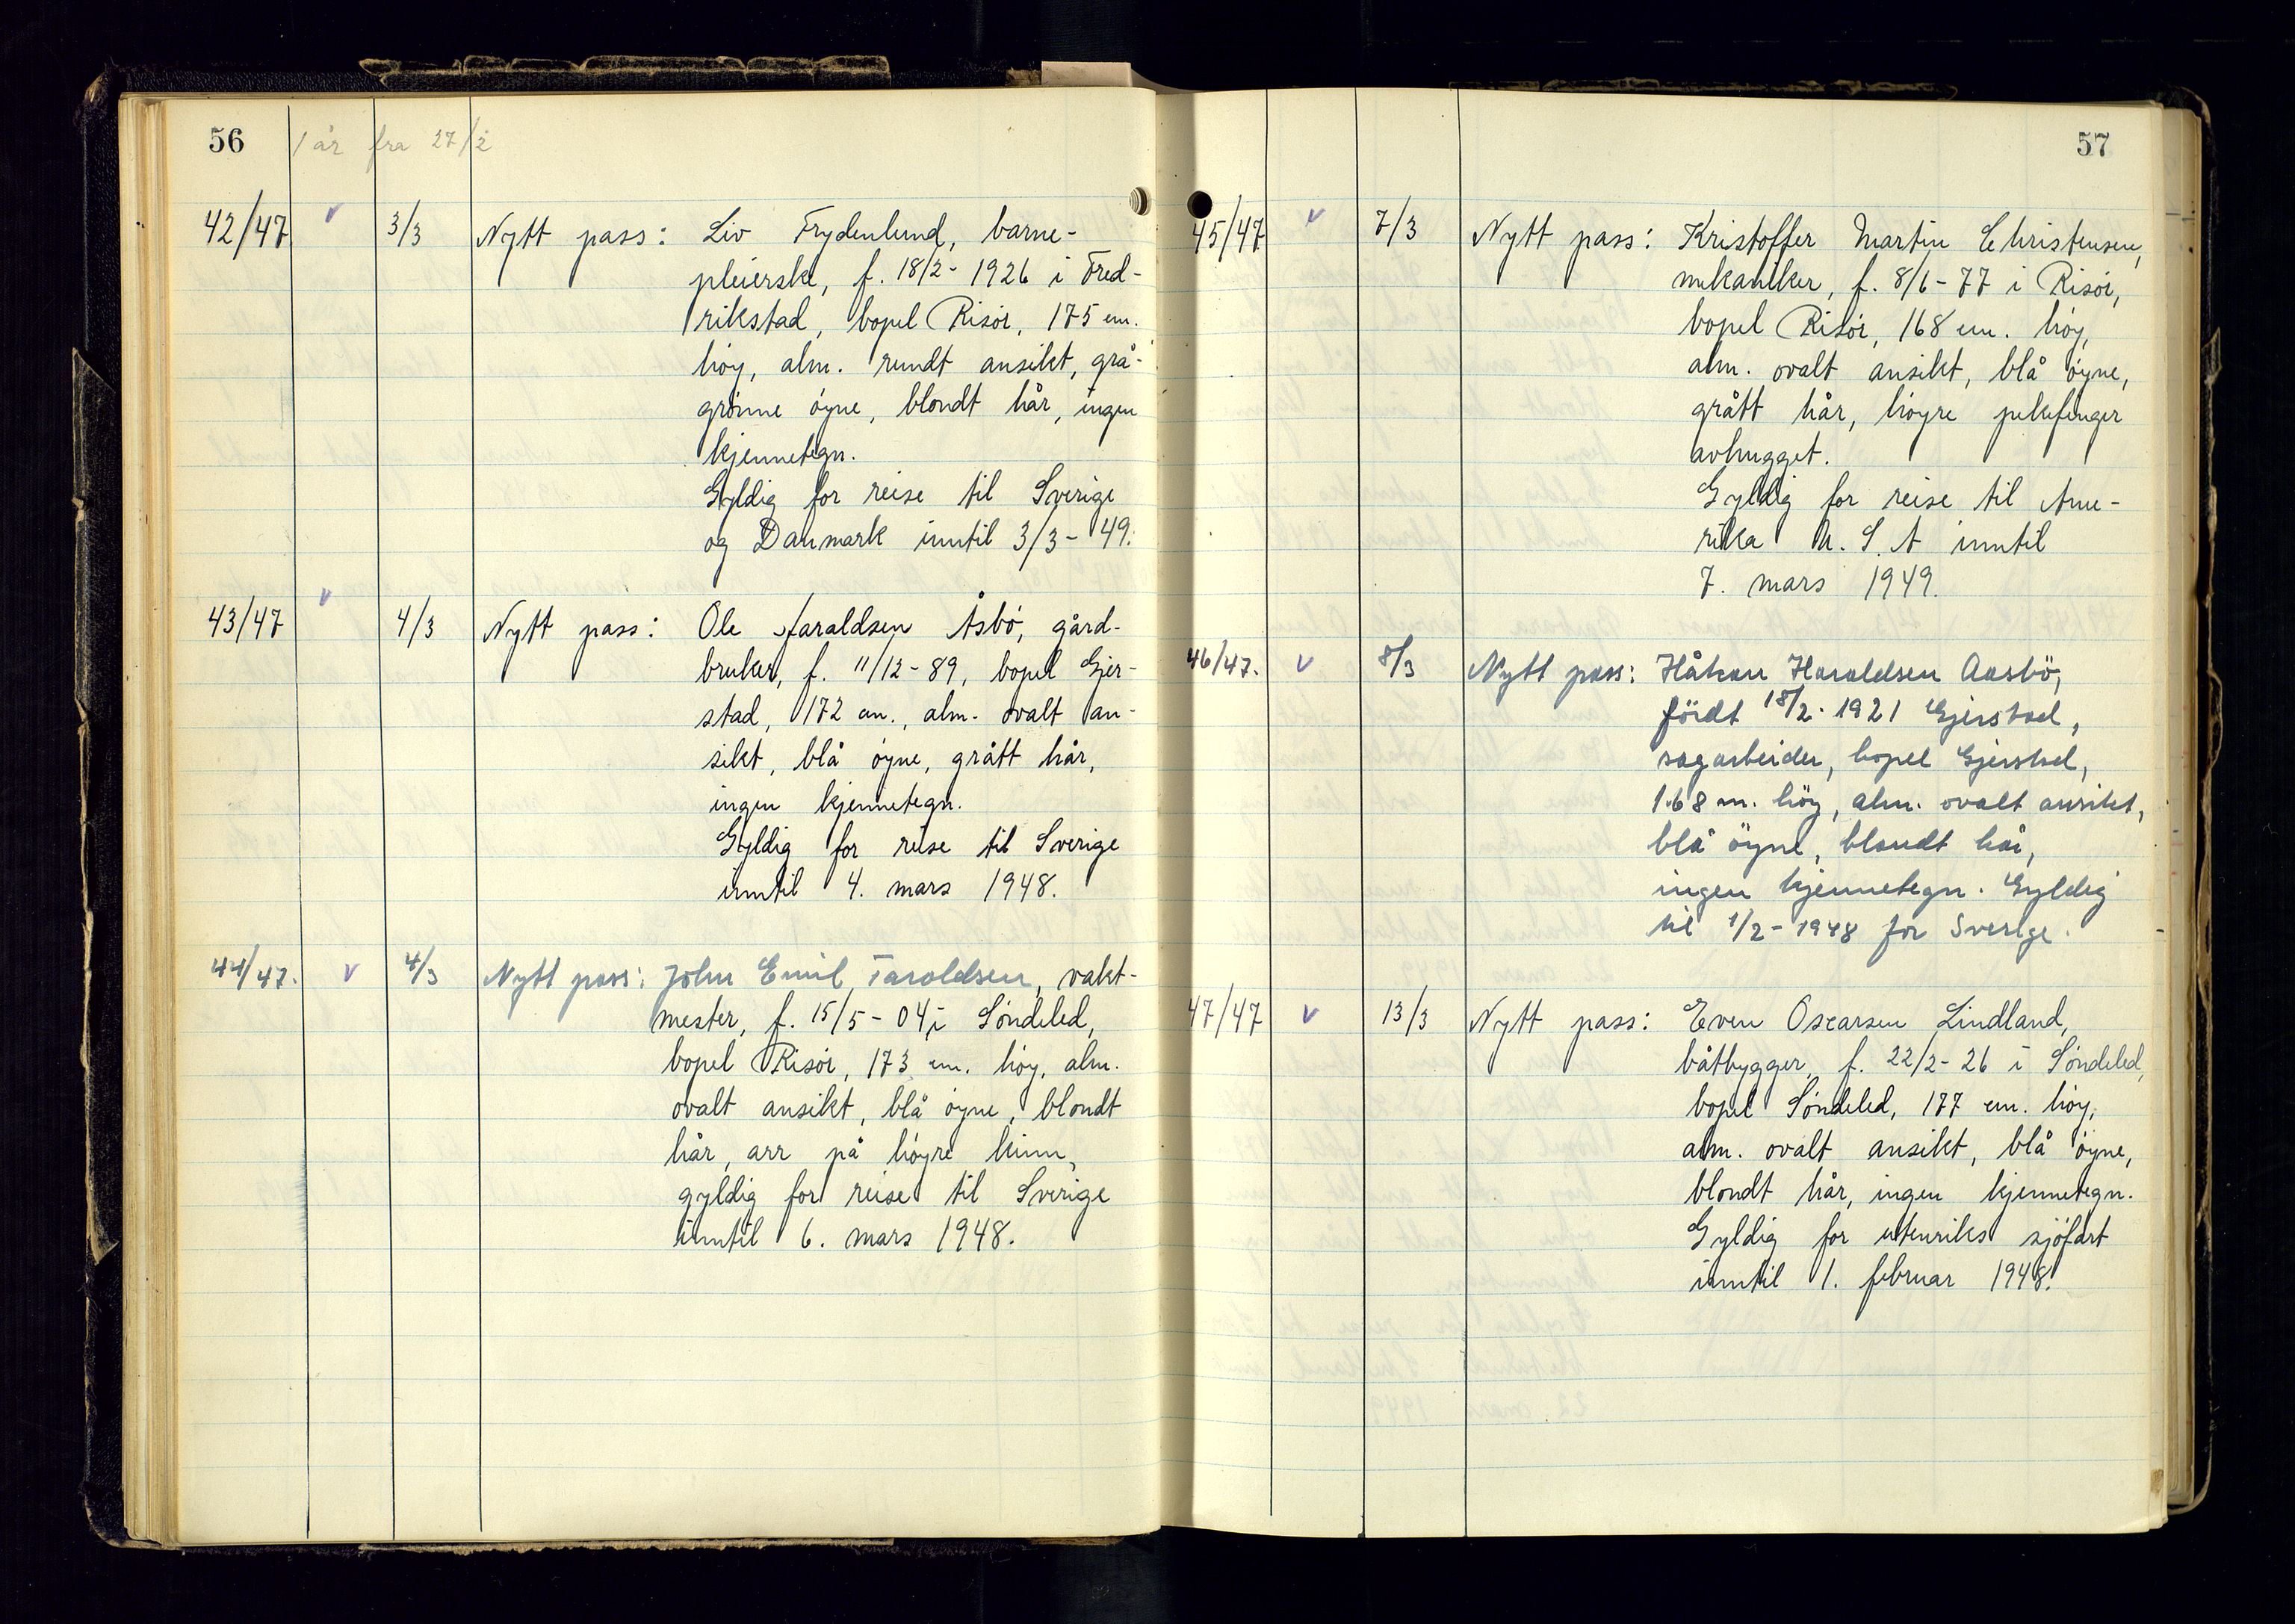 56
1 år fra 27/2
42/47 v 3/3 Nytt pass: Liv Frydenlund, barne-
pleierske, f. 18/2 - 1926 i Fred-
rikstad, bopel Risör, 175 cm.
höy, alm. rundt ansikt, grå-
grönne öyne, blondt hår, ingen
kjennetegn.
Gyldig for reise til Sverige
og Danmark inntil 3/3 - 49.
43/47 v 4/3 Nytt pass: Ole Haraldsen Åsbö, gård-
bruker, f. 11/12 - 89, bopel Gjer-
stad, 172 cm., alm. ovalt an-
sikt, blå öyne, grått hår,
ingen kjennetegn.
Gyldig for reise til Sverige
inntil 4. mars 1948.
44/47. v 4/3 Nytt pass: John Emil Taraldsen, vakt-
mester, f. 15/5 - 04 i Söndeled,
bopel Risör, 173 cm. höy, alm.
ovalt ansikt, blå öyne, blondt
hår, arr på höyre kinn,
gyldig for reise til Sverige
inntil 6. mars 1948.
57
45/47 v 7/3 Nytt pass: Kristoffer Martin Christensen,
mekaniker, f. 8/6 - 77 i Risör,
bopel Risör, 168 cm. höy,
alm. ovalt ansikt, blå öyne,
grått hår, höyre pekefinger
avhugget.
Gyldig for reise til Ame-
rika U.S.A inntil
7. mars 1949.
46/47. v 8/3 Nytt pass: Håkon Haraldsen Aasbö,
födt 18/2 - 1921 Gjerstad,
sagarbeider, bopel Gjerstad,
1.68 m. höy, alm. ovalt ansikt,
blå öyne, blondt hår,
ingen kjennetegn. Gyldig
til 1/2 - 1948 for Sverige.
47/47 v 13/3 Nytt pass: Even Oscarsen Lindland,
båtbygger, f. 22/2 - 26 i Söndeled,
bopel Söndeled, 177 cm. höy,
alm. ovalt ansikt, blå öyne,
blondt hår, ingen kjennetegn.
Gyldig for utenriks sjöfart
inntil 1. februar 1948.